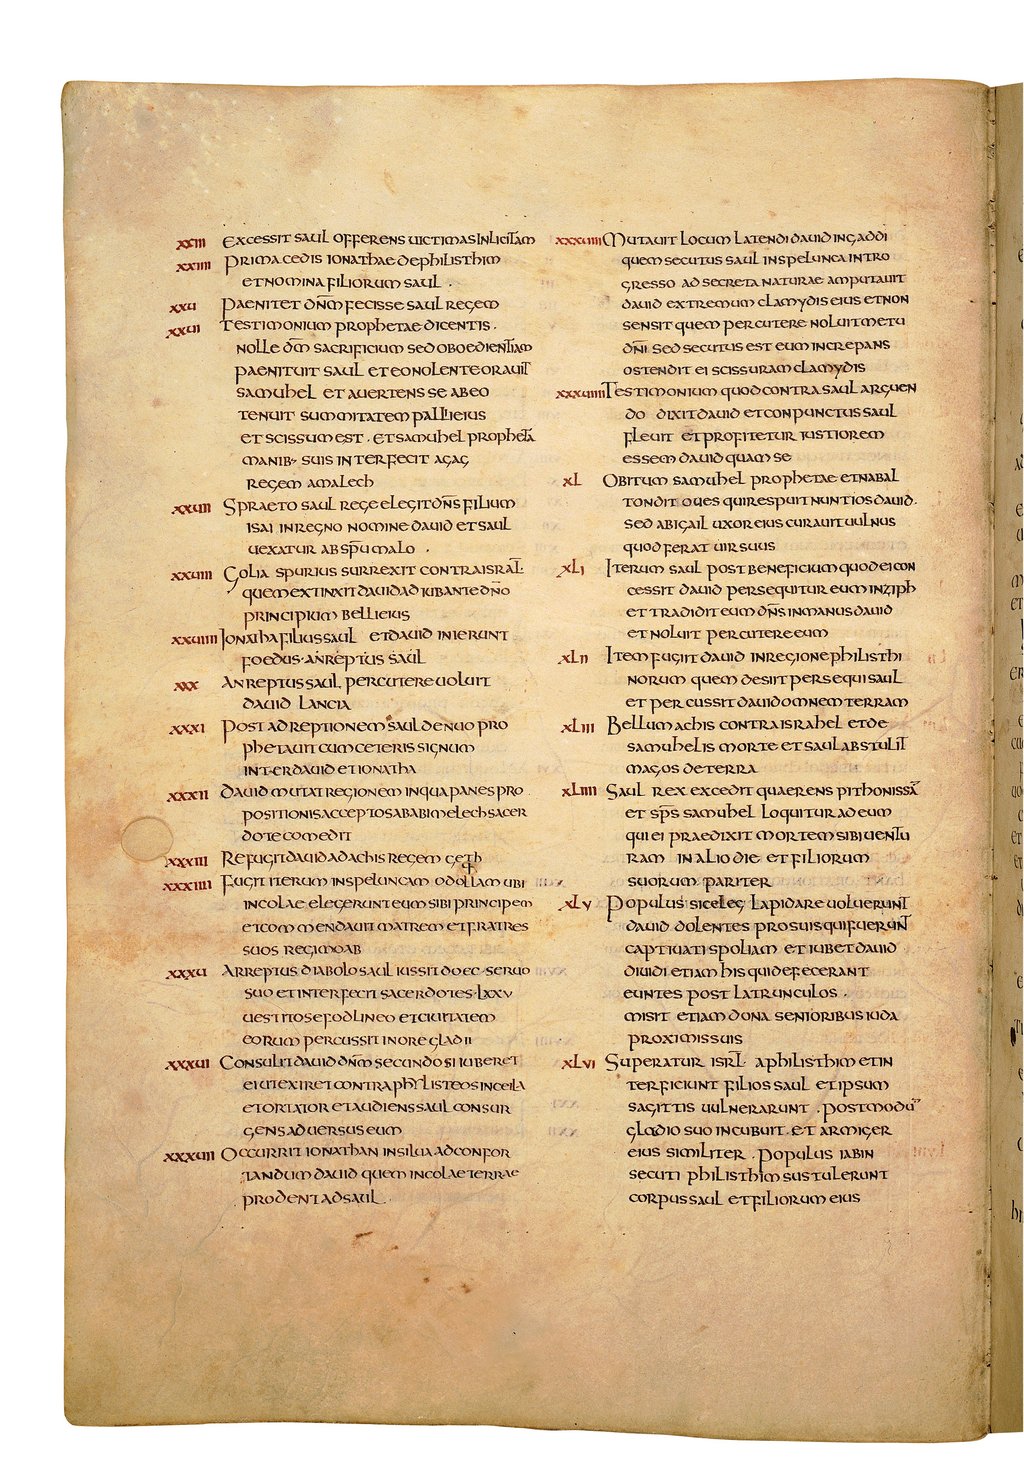 XXIII EXCESSIT SAUL OFFERENS UICTIMAS INLICITAM
XXIIII PRIMA CEDIS IONATHAE DE PHILISTHIM
ET NOMINA FILIORUM SAUL .
XXU PAENITET DN̅M FECISSE SAUL REGEM
XXUI TESTIMONIUM PROPHETAE DICENTIS .
NOLLE DM̅ SACRIFICIUM SED OBOEDIENTIAM
PAENITUIT SAUL ET EO NOLENTE ORAUIT
SAMUHEL ET AUERTENS SE AB EO
TENUIT SUMMITATEM PALLII EIUS
ET SCISSUM EST . ET SAMUHEL PROPHETA
MANIB· SUIS INTERFECIT AGAG
REGEM AMALECH
XXUII SPRAETO SAUL REGE ELEGIT DN̅S FILIUM
ISAI IN REGNO NOMINE DAUID ET SAUL
UEXATUR AB SPU̅ MALO .
XXUIII GOLIA SPURIUS SURREXIT CONTRA ISRAL̅·
QUEM EXTINXIT DAUID ADIUBANTE DN̅O
PRINCIPIUM BELLI EIUS
XXUIIII IONATHA FILIUS SAUL ET DAUID INIERUNT
FOEDUS · ANREPTUS SAUL
XXX ANREPTUS SAUL PERCUTERE UOLUIT
DAUID LANCIA
XXXI POST ADREPTIONEM SAUL DENUO PRO
PHETAUIT CUM CETERIS SIGNUM
INTER DAUID ET IONATHA
XXXII DAUID MUTAT REGIONEM IN QUA PANES PRO
POSITIONIS ACCEPTOS AB ABIMELECH SACER
DOTE COMEDIT
XXXIII REFUGIT DAUID AD ACHIS REGEM GETH
XXXIIII FUGIT ITERUM IN SPELUNCAM ODOLLAM UBI
INCOLAE ELEGERUNT EUM SIBI PRINCIPEM
ET COMMENDAUIT MATREM ET FRATRES
SUOS REGI MOAB
XXXU ARREPTUS DIABOLO SAUL IUSSIT DOEC · SERUO
SUO ET INTERFECIT SACERDOTES · LXXV
UESTITOS EFOD LINEO ET CIUITATEM
EORUM PERCUSSIT IN ORE GLADII
XXXUI CONSULIT DAUID DN̅M SECUNDO SI IUBERET
EI UT EXIRET CONTRA PHYLISTEOS IN CEILA
ET ORTATOR ET AUDIENS SAUL CONSUR
GENS ADUERSUS EUM
XXXUII OCCURRIT IONATHAN IN SILUA AD CONFOR
TANDUM DAUID QUEM INCOLAE TERRAE
PRODENT AD SAUL .
XXXUIII MUTAUIT LOCUM LATENDI DAUID IN GADDI
QUEM SECUTUS SAUL IN SPELUNCA INTRO
GRESSO AD SECRETA NATURAE AMPUTAUIT
DAUID EXTREMUM CLAMYDIS EIUS ET NON
SENSIT QUEM PERCUTERE NOLUIT METU
DN̅I SED SECUTUS EST EUM INCREPANS
OSTENDIT EI SCISSURAM CLAMYDIS
XXXUIIII TESTIMONIUM QUOD CONTRA SAUL ARGUEN
DO DIXIT DAUID ET CONPUNCTUS SAUL
FLEUIT ET PROFITETUR IUSTIOREM
ESSEM DAUID QUAM SE
XL OBITUM SAMUHEL PROPHETAE ET NABAL
TONDIT OUES QUI RESPUIT NUNTIOS DAUID ·
SED ABIGAIL UXOR EIUS CURAUIT UULNUS
QUOD FERAT UIR SUUS
XLI ITERUM SAUL POST BENEFICIUM QUOD EI CON
CESSIT DAUID PERSEQUITUR EUM IN ZIPH
ET TRADIDIT EUM DN̅S IN MANUS DAUID
ET NOLUIT PERCUTERE EUM
XLII ITEM FUGIIT DAUID IN REGIONE PHILISTHI
NORUM QUEM DESIIT PERSEQUI SAUL
ET PERCUSSIT DAUID OMNEM TERRAM
XLIII BELLUM ACHIS CONTRA ISRAHEL ET DE
SAMUHELIS MORTE ET SAUL ABSTULIT
MAGOS DE TERRA
XLIIII SAUL REX EXCEDIT QUAERENS PITHONISSA̅
ET SPS̅ SAMUHEL LOQUITUR AD EUM
QUI EI PRAEDIXIT MORTEM SIBI UENTU
RAM IN ALIO DIE ET FILIORUM
SUORUM PARITER
XLV POPULUS SICELEG LAPIDARE UOLUERUNT
DAUID DOLENTES PRO SUIS QUI FUERUNT
CAPTIUATI SPOLIAM ET IUBET DAUID
DIUIDI ETIAM HIS QUI DEFECERANT
EUNTES POST LATRUNCULOS .
MISIT ETIAM DONA SENIORIBUS IUDA
PROXIMIS SUIS
XLVI SUPERATUR ISRL̅· A PHILISTHIM ET IN
TERFICIUNT FILIOS SAUL ET IPSUM
SAGITTIS UULNERARUNT . POSTMODU̅
GLADIO SUO INCUBUIT . ET ARMIGER
EIUS SIMILITER . POPULUS IABIN
SECUTI PHILISTHIM SUSTULERUNT
CORPUS SAUL ET FILIORUM EIUS